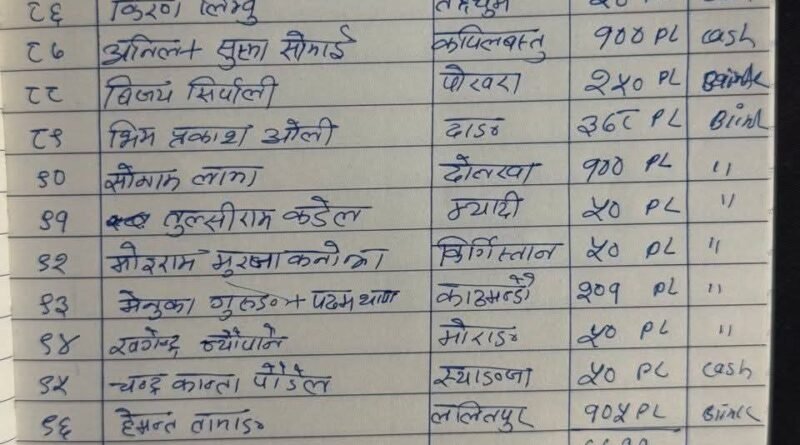 ८६ किरण लिम्बु
८७ अनिल + सुष्मा सोमाई कपिलबस्तु १०० PL cash
८८ विजय सिर्पाली पोखरा २५० PL
८९ भिम प्रकाश ओली दाङ ३६८ PL
९० लामा दोलखा १०० PL "
९१ तुलसीराम कडेल म्यादी ५० PL "
९२ मोइराम किर्गिस्तान ५० PL "
९३ मेनुका गुरुङ + पदम थापा काठमाण्डौ २०१ PL "
९४ खगेन्द्र न्यौपाने मोराङ ५० PL "
९५ चन्द्र कान्ता पौडेल स्याङजा ५० PL cash
९६ हेमन्त तामाङ ललितपुर १०५ PL